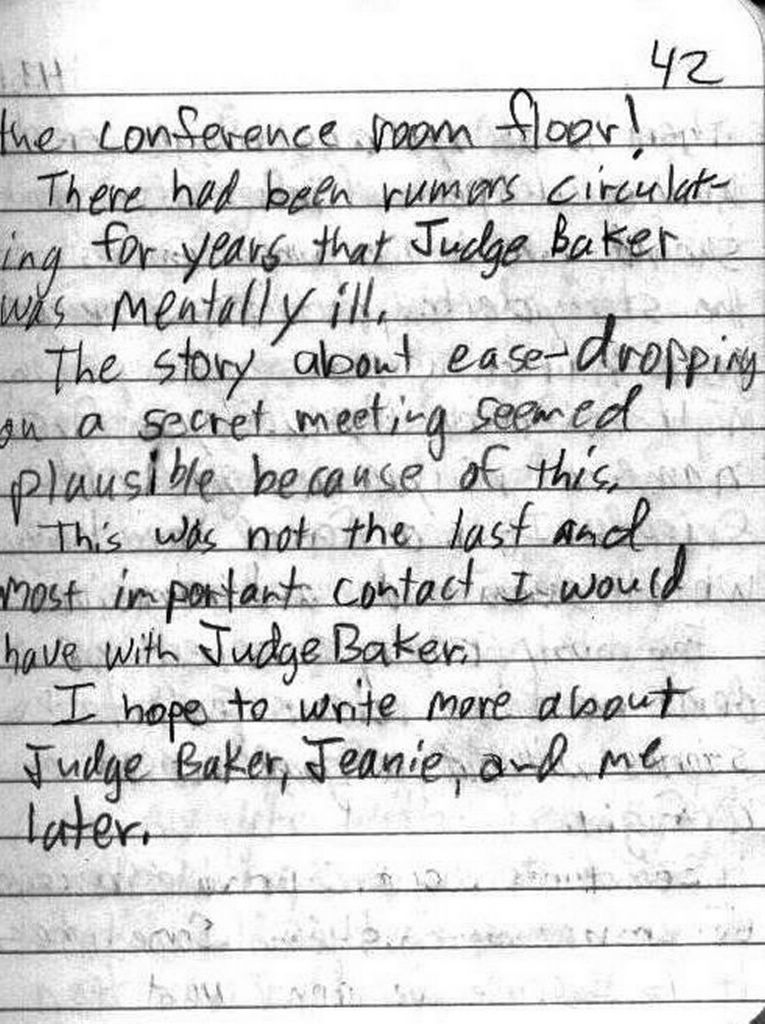 42
the conference room floor!
There had been rumors circulat-
ing for years that Judge Baker
was mentally ill.
The story about ease-dropping
on a secret meeting seemed
plausible because of this.
This was not the last and
most important contact I would
have with Judge Baker.
I hope to write more about
Judge Baker, Jeanie, and me
later.